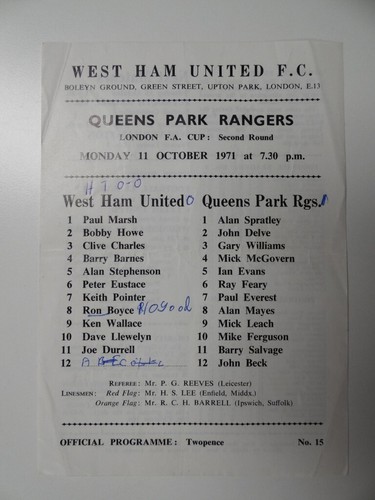 WEST HAM UNITED F.C.
BOLEYN GROUND, GREEN STREET, UPTON PARK, LONDON, E.13
QUEENS PARK RANGERS
LONDON F.A. CUP: Second Round
MONDAY 11 OCTOBER 1971 at 7.30 p.m.
H T 0-0
West Ham United 0 Queens Park Rgs. 1
1 Paul Marsh 1 Alan Spratley
2 Bobby Howe 2 John Delve
3 Clive Charles 3 Gary Williams
4 Barry Barnes 4 Mick McGovern
5 Alan Stephenson 5 Ian Evans
6 Peter Eustace 6 Ray Feary
7 Keith Pointer 7 Paul Everest
8 Ron Boyce 8 Alan Mayes
9 Ken Wallace 9 Mick Leach
10 Dave Llewelyn 10 Mike Ferguson
11 Joe Durrell 11 Barry Salvage
12 12 John Beck
REFEREE: Mr. P. G. REEVES (Leicester)
LINESMEN: Red Flag: Mr. H. S. LEE (Enfield, Middx.)
Orange Flag: Mr. R. C. H. BARRELL (Ipswich, Suffolk)
OFFICIAL PROGRAMME: Twopence No. 15